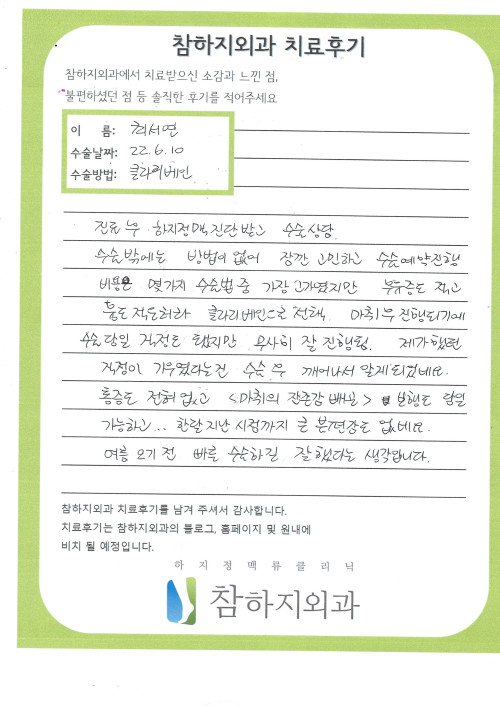 참하지외과 치료후기
참하지외과에서 치료받으신 소감과 느낀 점,
불편하셨던 점 등 솔직한 후기를 적어주세요
이 름: 최서연
수술날짜: 22. 6. 10
수술방법: 클라리베인
진료 후 하지정맥 진단 받고 수술상담.
수술 밖에는 방법이 없어 잠깐 고민하고 수술예약 진행
비용은 몇가지 수술법 중 가장 고가였지만 부유증도 적고
통도 적은하라 클라리베인으로 선택. 마취 후 진행되기에
수술 당일 걱정도 했지만 무사히 잘 진행됨. 제가 했던
걱정이 기우였다는건 수술 후 깨어나서 알게 되었네요.
통증도 전혀 없고 <마취의 잔존감 배분> 보행도 당일
가능하고... 한달 지난 시점까지 큰 불편감도 없네요.
여름 오기 전 빠른 수술하길 잘 했다는 생각입니다.
참하지외과 치료후기를 남겨 주셔서 감사합니다.
치료후기는 참하지외과의 블로그, 홈페이지 및 원내에
비치 될 예정입니다.
하지정맥류클리닉
참하지외과